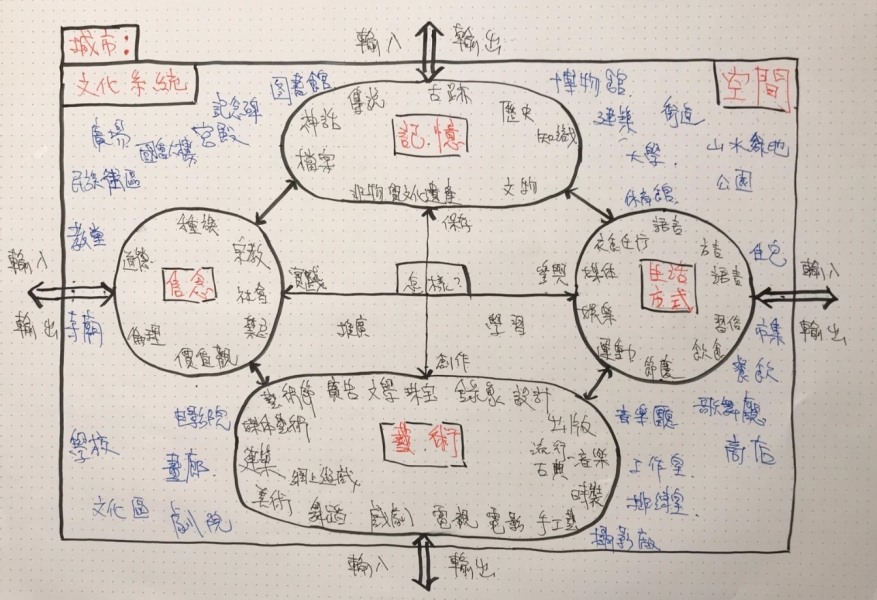 城市:
輸入 輸出
文化系統
空間
圖書館
博物館
記念碑
廣場
宮殿
建築
街道
大學
山水綠地
公園
體育館
傳說
古跡
神話
記.憶
歷史
知識
檔案
非物質文化遺產
文物
教堂
種族
道德
宗教
信念
社會
禁忌
倫理
價值觀
輸入
輸出
寺廟
保存
實踐
怎樣?
參與
推廣
學習
創作
語言
衣食住行
方言
媒体
生活
方式
娛樂
習俗
運動
飲食
節慶
住宅
輸入
輸出
市集
餐飲
廣告 文學 珠寶
設計
媒体藝術
出版
建築
藝.術
流行
古典
音樂
網上遊戲
時裝
美術
舞蹈
戲劇
電視
電影
手工藝
電影院
畫廊
文化區
劇院
音樂廳
歌舞廳
商店
工作室
排練室
攝影廠
輸入 輸出